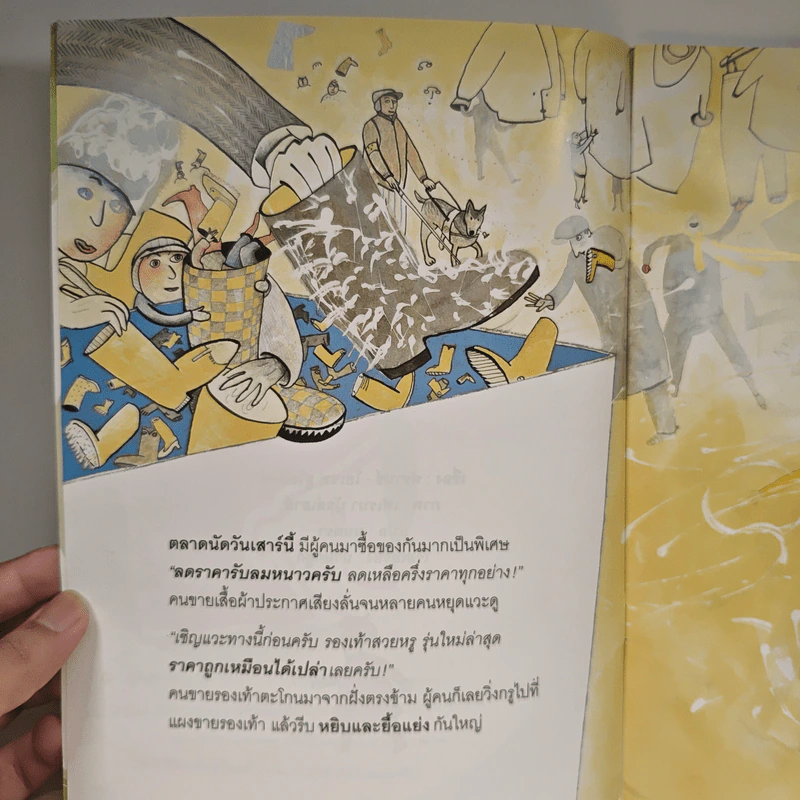 ตลาดนัดวันเสาร์นี้ มีผู้คนมาซื้อของกันมากเป็นพิเศษ
“ลดราคารับลมหนาวครับ ลดเหลือครึ่งราคาทุกอย่าง!”
คนขายเสื้อผ้าประกาศเสียงลั่นจนหลายคนหยุดแวะดู
“เชิญแวะทางนี้ก่อนครับ รองเท้าสวยหรู รุ่นใหม่ล่าสุด
ราคาถูกเหมือนได้เปล่าเลยครับ!”
คนขายรองเท้าตะโกนมาจากฝั่งตรงข้าม ผู้คนก็เลยวิ่งกรูไปที่
แผงขายรองเท้า แล้วรีบ หยิบและยื้อแย่ง กันใหญ่